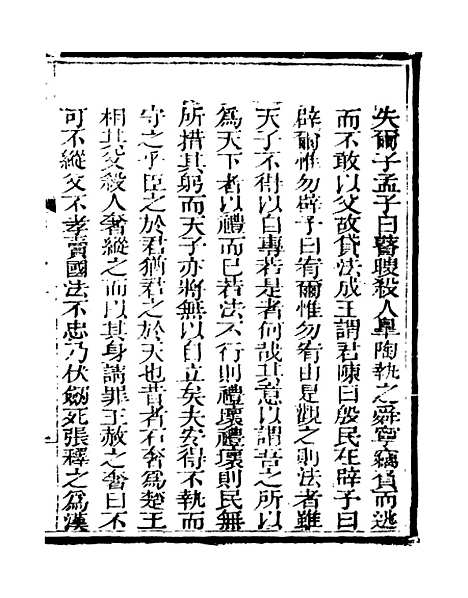 失爾子孟子曰瞽瞍殺人皐陶執之舜寧竊負而逃
而不敢以父故貸法成王謂君陳曰殷民在辟予曰
辟爾惟勿辟予曰宥爾惟勿宥由是觀之則法者雖
天子不得以自專若是者何哉其意以謂吾之所以
爲天下者以禮而已若法不行則禮壞禮壞則民無
所措其躬而天子亦將無以自立矣夫安得不執而
守之乎臣之於君猶君之於天也昔者石奢爲楚王
相其父殺人奢縱之而以其身請罪王赦之奢曰不
可不縱父不孝賣國法不忠乃伏劒死張釋之爲漢